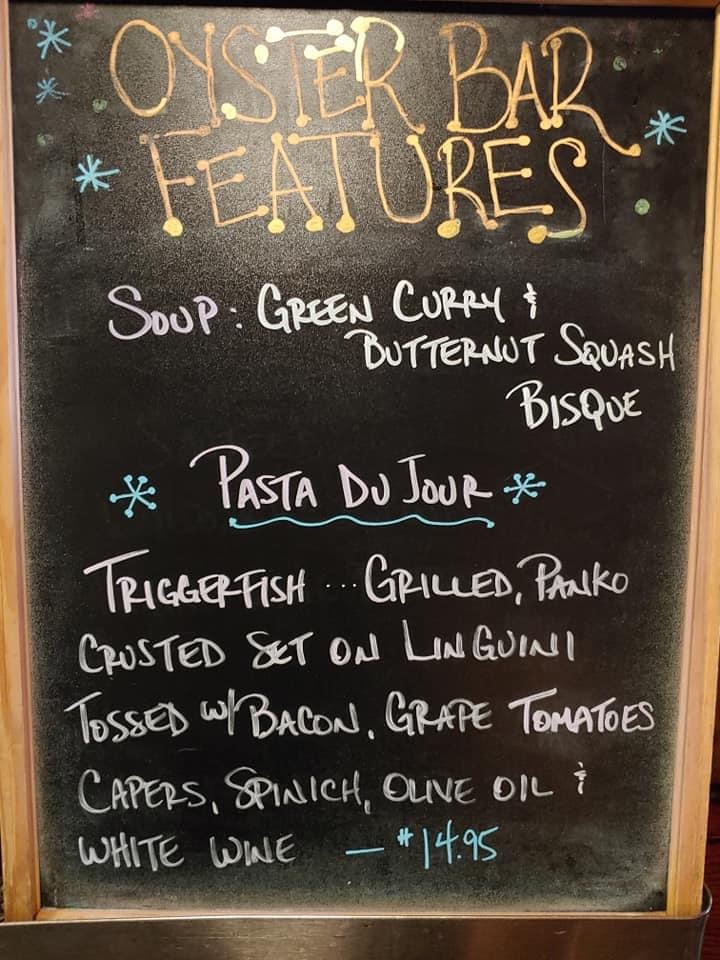 OYSTER BAR
FEATURES
SOUP: GREEN CURRY &
BUTTERNUT SQUASH
BISQUE
PASTA DU JOUR
TRIGGERFISH ... GRILLED, PANKO
CRUSTED SET ON LINGUINI
TOSSED W/ BACON, GRAPE TOMATOES
CAPERS, SPINICH, OLIVE OIL &
WHITE WINE — $14.95